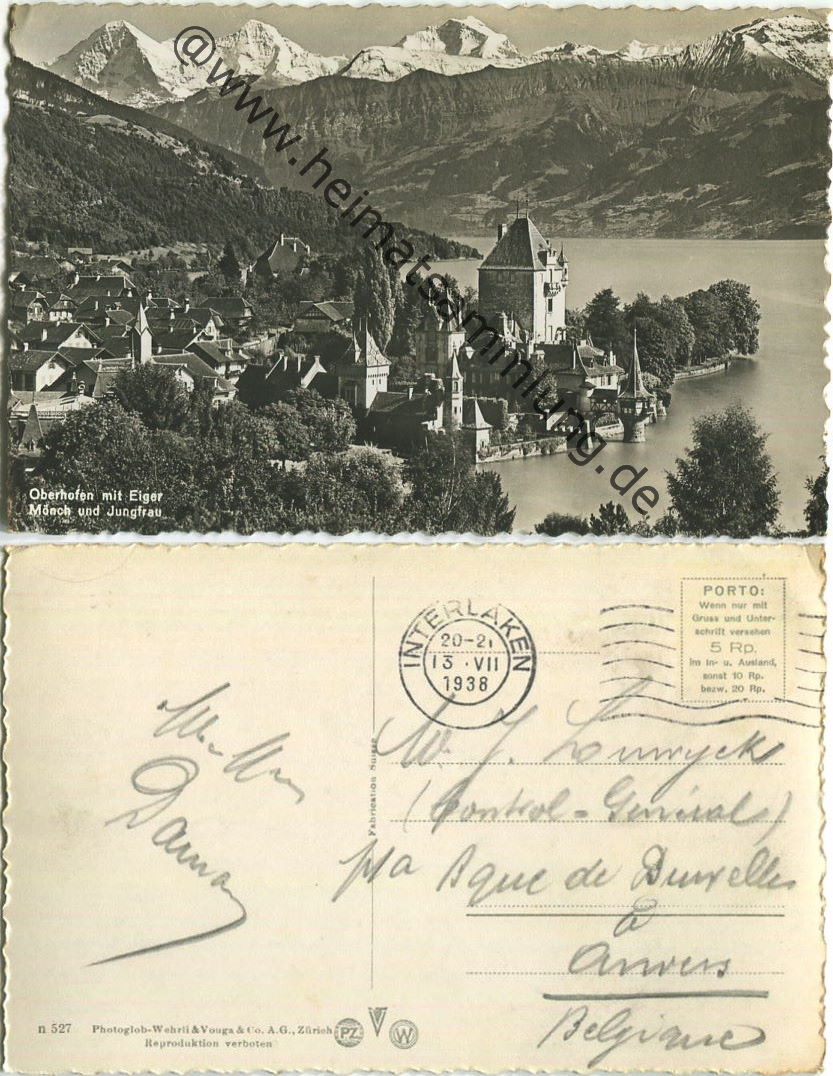 @www.heimatsammlung.de
Oberhofen mit Eiger
Mönch und Jungfrau
INTERLAKEN
20-21
13 · VII
1938
PORTO:
Wenn nur mit
Gruss und Unter-
schrift versehen
5 Rp.
im In- u. Ausland,
sonst 10 Rp.
bezw. 20 Rp.
Fabrication Suisse
J.
(Control-Général)
p/a Bque de Bruxelles
à
Anvers
Belgique
n 527 Photoglob-Wehrli & Vouga & Co. A.G., Zürich
Reproduktion verboten
PZ
W